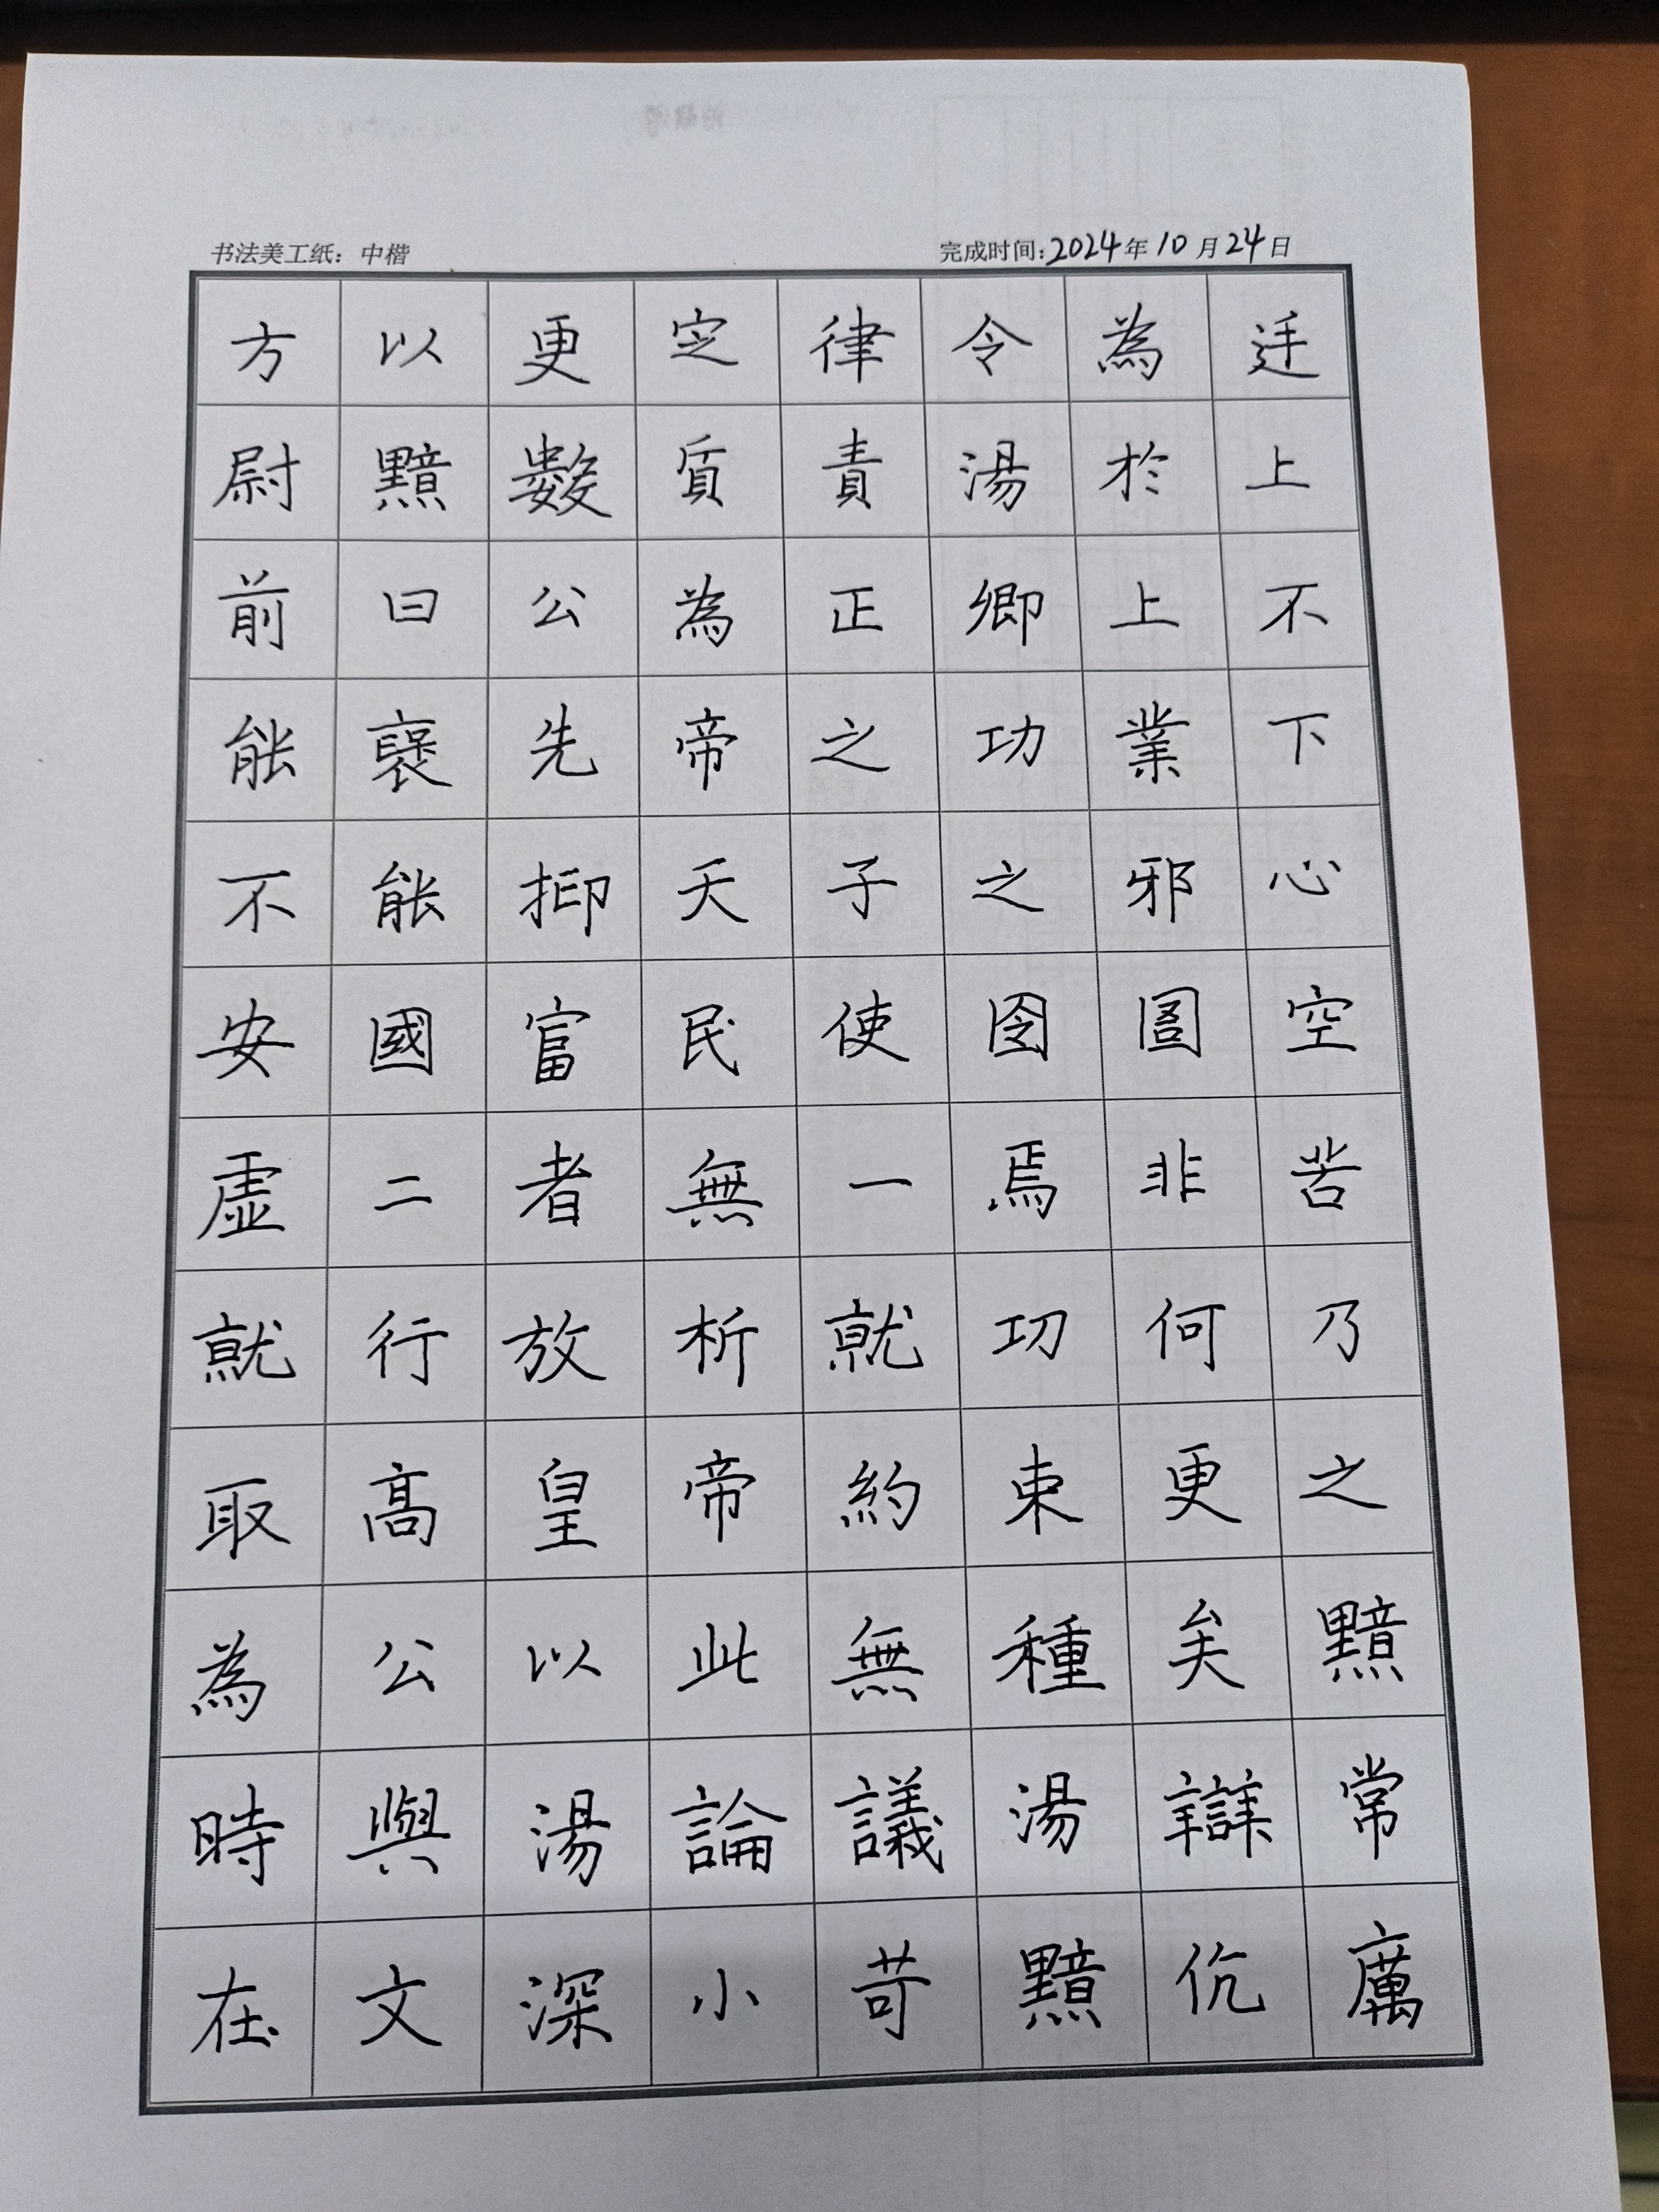 书法美工纸：中楷
完成时间：2024年10月24日
方以更定律令為廷
尉黯數質責湯於上
前曰公為正卿上不
能襃先帝之功業下
不能抑天子之邪心
安國富民使囹圄空
虛二者無一焉非苦
就行放析就功何乃
取高皇帝約束更之
為公以此無種矣黯
時與湯論議湯辯常
在文深小苛黯伉厲